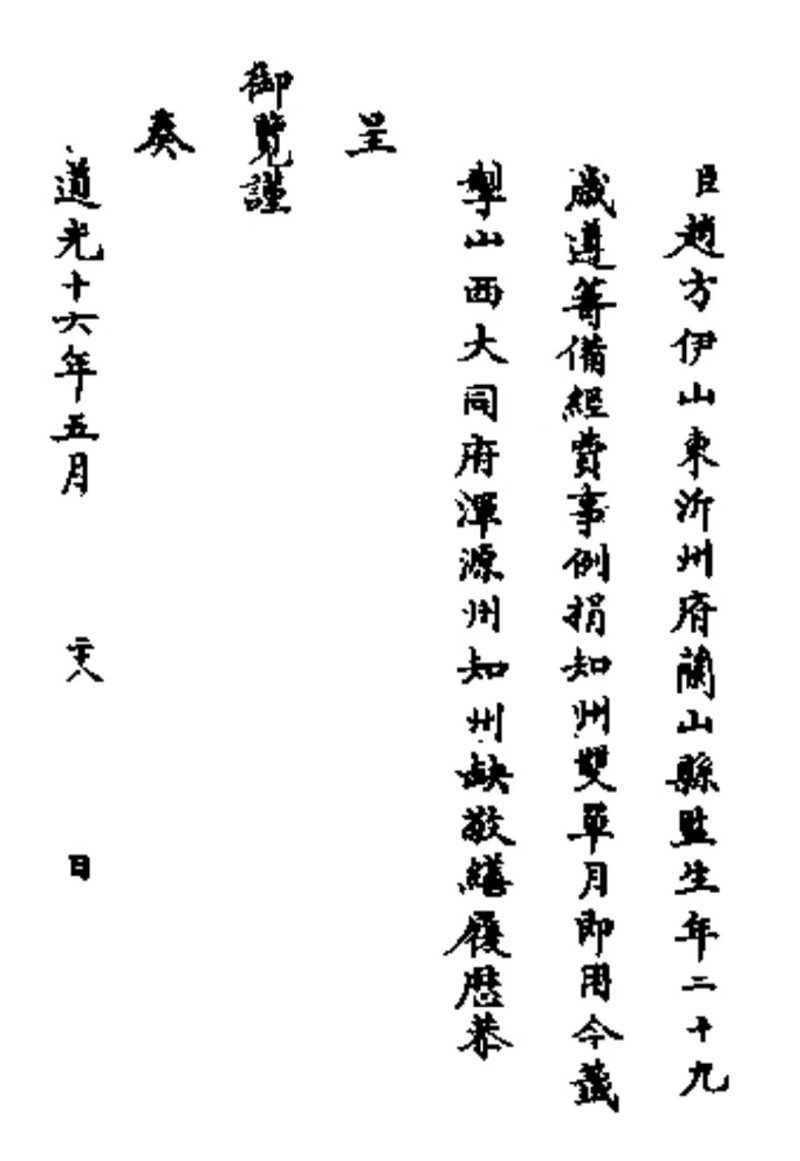 臣趙方伊山東沂州府蘭山縣監生年二十九
歲遵籌備經費事例捐知州雙單月即用今籤
掣山西大同府渾源州知州缺敬繕履歷恭
呈
御覽謹
奏
道光十六年五月 二十八 日